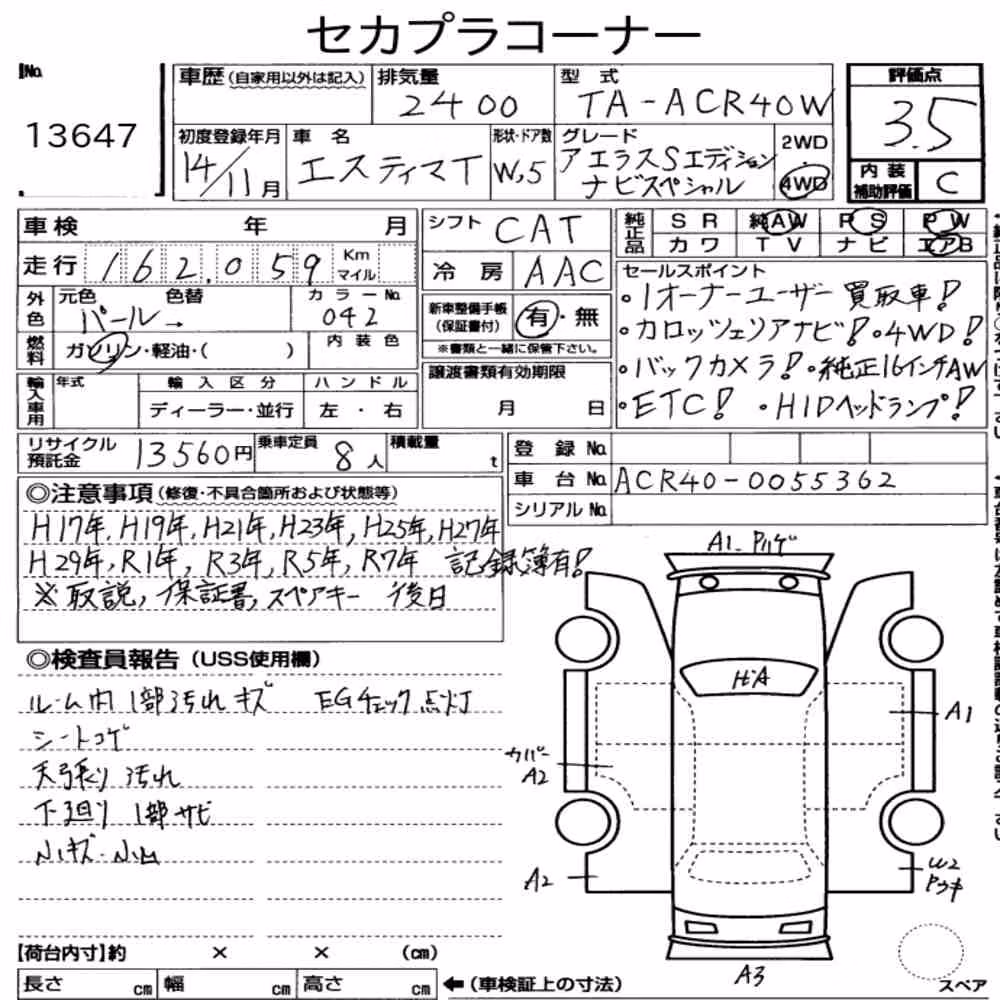 セカプラコーナー
No.
13647
車歴 (自家用以外は記入)
排気量
2400
型式
TA-ACR40W
評価点
3.5
初度登録年月
14/11月
車名
エスティマT
形状・ドア数
W,5
グレード
アエラスSエディション
ナビスペシャル
2WD
4WD
内装
補助評価
C
車検 年 月
走行 162,059 Km マイル
外色
元色 色替
パール→
カラーNo.
042
燃料
ガソリン・軽油・( )
内装色
輸入車用
年式
輸入区分
ディーラー・並行
ハンドル
左・右
シフト
CAT
冷房
AAC
新車整備手帳
(保証書付)
有・無
※書類と一緒に保管下さい。
譲渡書類有効期限
月 日
純正品
SR 純AW PS PW
カワ TV ナビ エアB
セールスポイント
。1オーナーユーザー買取車!
。カロッツェリアナビ!。4WD!
。バックカメラ!。純正16インチAW
・ETC! 。HIDヘッドランプ!
リサイクル
預託金
13560円
乗車定員
8人
積載量
t
登録No.
車台No. ACR40-0055362
シリアルNo.
◎注意事項 (修復・不具合箇所および状態等)
H17年,H19年,H21年,H23年,H25年,H27年
H29年,R1年,R3年,R5年,R7年 記録簿有!
※取説,保証書,スペアキー 後日
◎検査員報告 (USS使用欄)
ルーム内1部汚れキズ EGチェック点灯
シートコゲ
天張り汚れ
下廻り1部サビ
小キズ・小凹
A1 Pハゲ
ヒビA
A1
カバー
A2
A2
W2
Pウキ
A3
スペア
【荷台内寸】約 × × (cm)
長さ cm 幅 cm 高さ cm
←(車検証上の寸法)